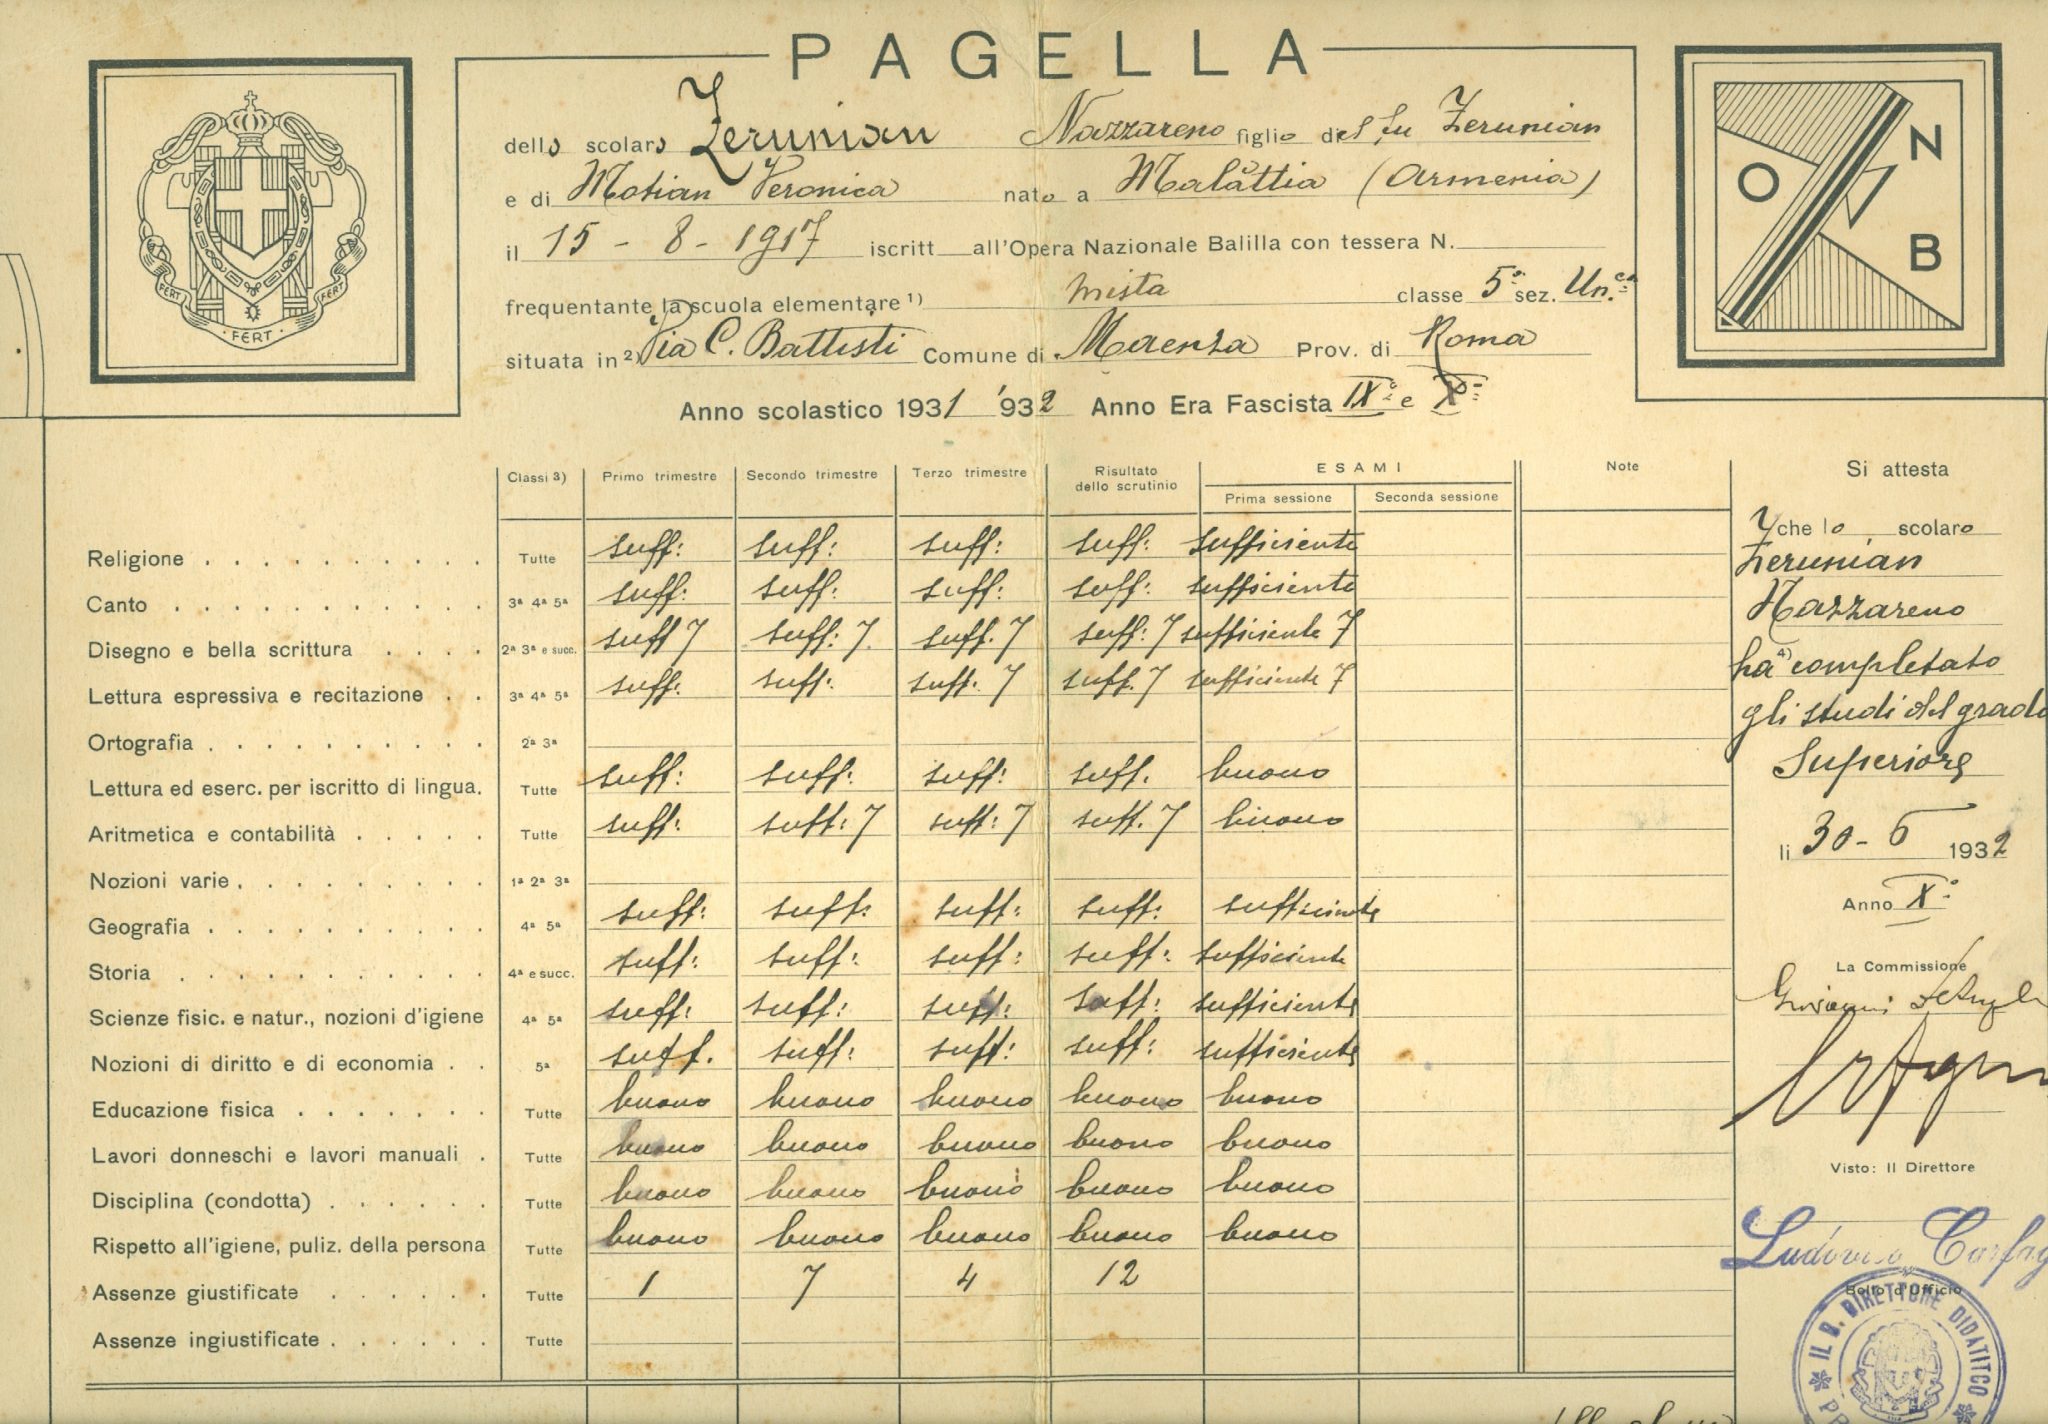 PAGELLA
dello scolaro Zerunian Nazzareno figlio del fu Zerunian
e di Motian Veronica nato a Malattia (Armenia)
il 15 - 8 - 1917 iscritt all'Opera Nazionale Balilla con tessera N.
frequentante la scuola elementare 1) mista classe 5ª sez. Un.ca
situata in 2) Via C. Battisti Comune di Maenza Prov. di Roma
Anno scolastico 1931 '932 Anno Era Fascista IX° e X°
FERT FERT FERT
O N B
Classi 3) Primo trimestre Secondo trimestre Terzo trimestre Risultato dello scrutinio ESAMI Prima sessione Seconda sessione Note
Religione Tutte suff: suff: suff: suff: sufficiente
Canto 3ª 4ª 5ª suff: suff: suff: suff: sufficiente
Disegno e bella scrittura 2ª 3ª e succ. suff 7 suff: 7 suff. 7 suff: 7 sufficiente 7
Lettura espressiva e recitazione 3ª 4ª 5ª suff: suff: suff. 7 suff. 7 sufficiente 7
Ortografia 2ª 3ª
Lettura ed eserc. per iscritto di lingua. Tutte suff: suff: suff: suff. buono
Aritmetica e contabilità Tutte suff: suff: 7 suff: 7 suff. 7 buono
Nozioni varie 1ª 2ª 3ª
Geografia 4ª 5ª suff: suff: suff: suff: sufficiente
Storia 4ª e succ. suff: suff: suff: suff: sufficiente
Scienze fisic. e natur., nozioni d'igiene 4ª 5ª suff: suff: suff: suff: sufficiente
Nozioni di diritto e di economia 5ª suff. suff: suff: suff: sufficiente
Educazione fisica Tutte buono buono buono buono buono
Lavori donneschi e lavori manuali Tutte buono buono buono buono buono
Disciplina (condotta) Tutte buono buono buono buono buono
Rispetto all'igiene, puliz. della persona Tutte buono buono buono buono buono
Assenze giustificate Tutte 1 7 4 12
Assenze ingiustificate Tutte
Si attesta
che lo scolaro
Zerunian
Nazzareno
ha 4) completato
gli studi del grado
Superiore
li 30 - 6 1932
Anno X°
La Commissione
Giovanni
Visto: Il Direttore
Ludovico
Bollo d'Ufficio
IL R. DIRETTORE DIDATTICO